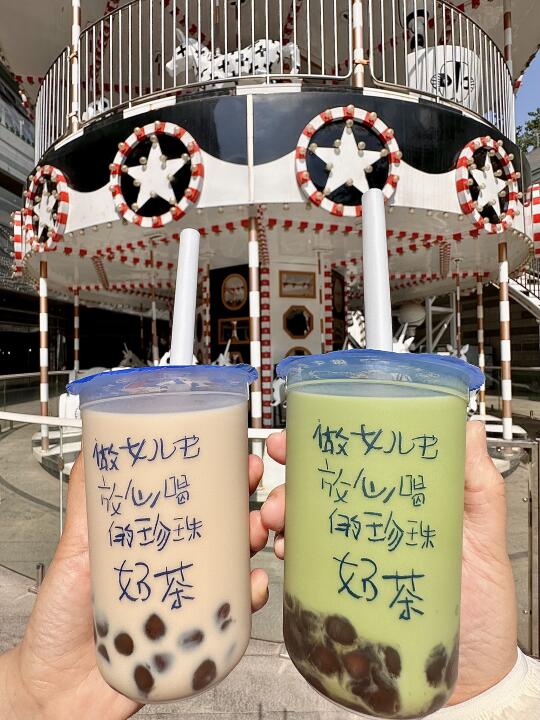 做女儿也
放心喝
的珍珠
奶茶
做女儿也
放心喝
的珍珠
奶茶